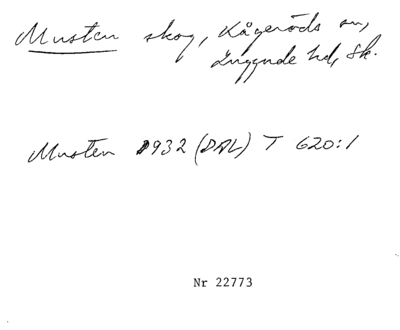 Musten skog, Kågeröds sn,
Luggude hd, Sk.
Musten 1932 (DAL) T 620:1
Nr 22773